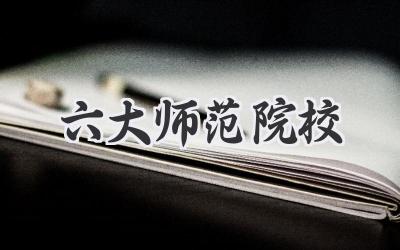 六大师范院校